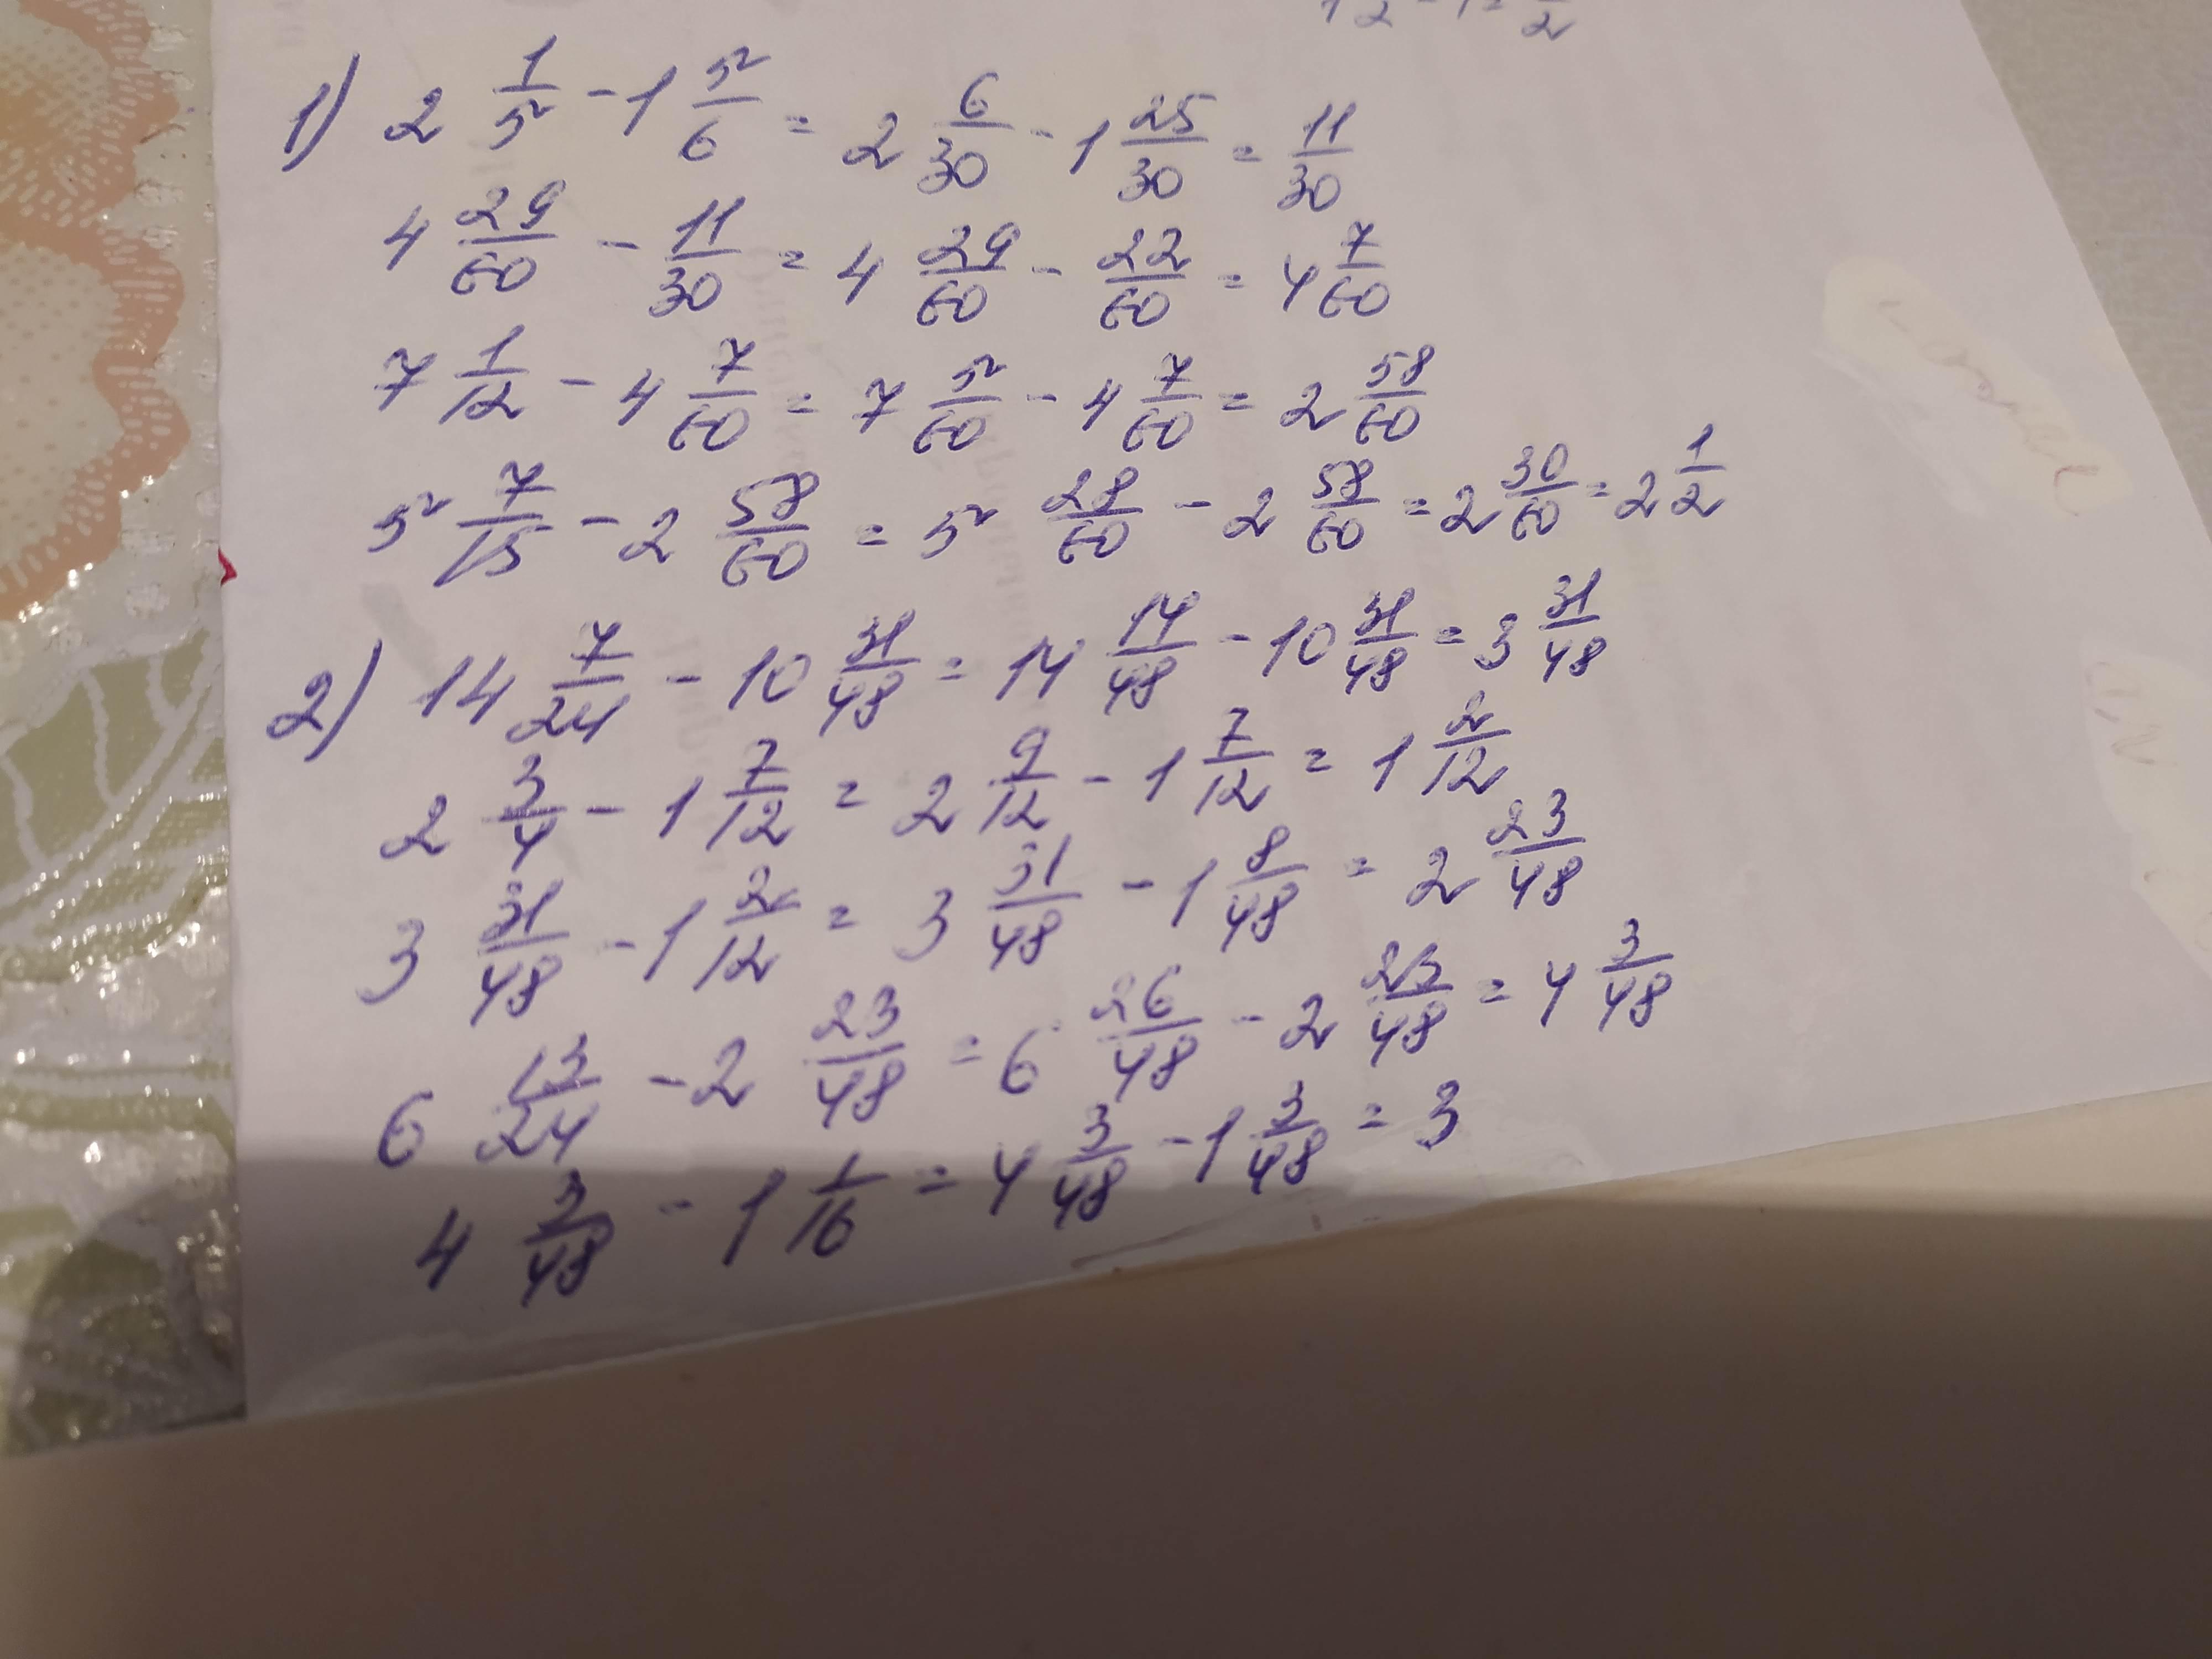 1) 2 1/5 - 1 5/6 = 2 6/30 - 1 25/30 = 11/30
4 29/60 - 11/30 = 4 29/60 - 22/60 = 4 7/60
7 1/12 - 4 7/60 = 7 5/60 - 4 7/60 = 2 58/60
5 7/15 - 2 58/60 = 5 28/60 - 2 58/60 = 2 30/60 = 2 1/2
2) 14 7/24 - 10 31/48 = 14 14/48 - 10 31/48 = 3 31/48
2 3/4 - 1 7/12 = 2 9/12 - 1 7/12 = 1 2/12
3 31/48 - 1 2/12 = 3 31/48 - 1 8/48 = 2 23/48
6 13/24 - 2 23/48 = 6 26/48 - 2 23/48 = 4 3/48
4 3/48 - 1 1/16 = 4 3/48 - 1 3/48 = 3